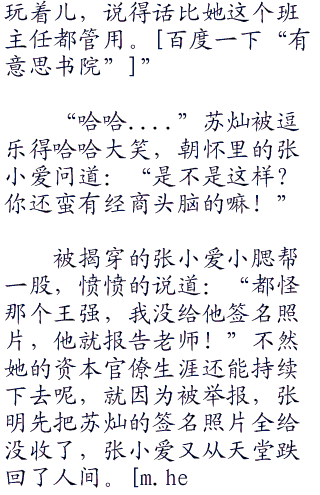 玩着儿，说得话比她这个班
主任都管用。[百度一下“有
意思书院”]”
“哈哈....”苏灿被逗
乐得哈哈大笑，朝怀里的张
小爱问道：“是不是这样？
你还蛮有经商头脑的嘛！”
被揭穿的张小爱小腮帮
一股，愤愤的说道：“都怪
那个王强，我没给他签名照
片，他就报告老师！”不然
她的资本官僚生涯还能持续
下去呢，就因为被举报，张
明先把苏灿的签名照片全给
没收了，张小爱又从天堂跌
回了人间。[m.he